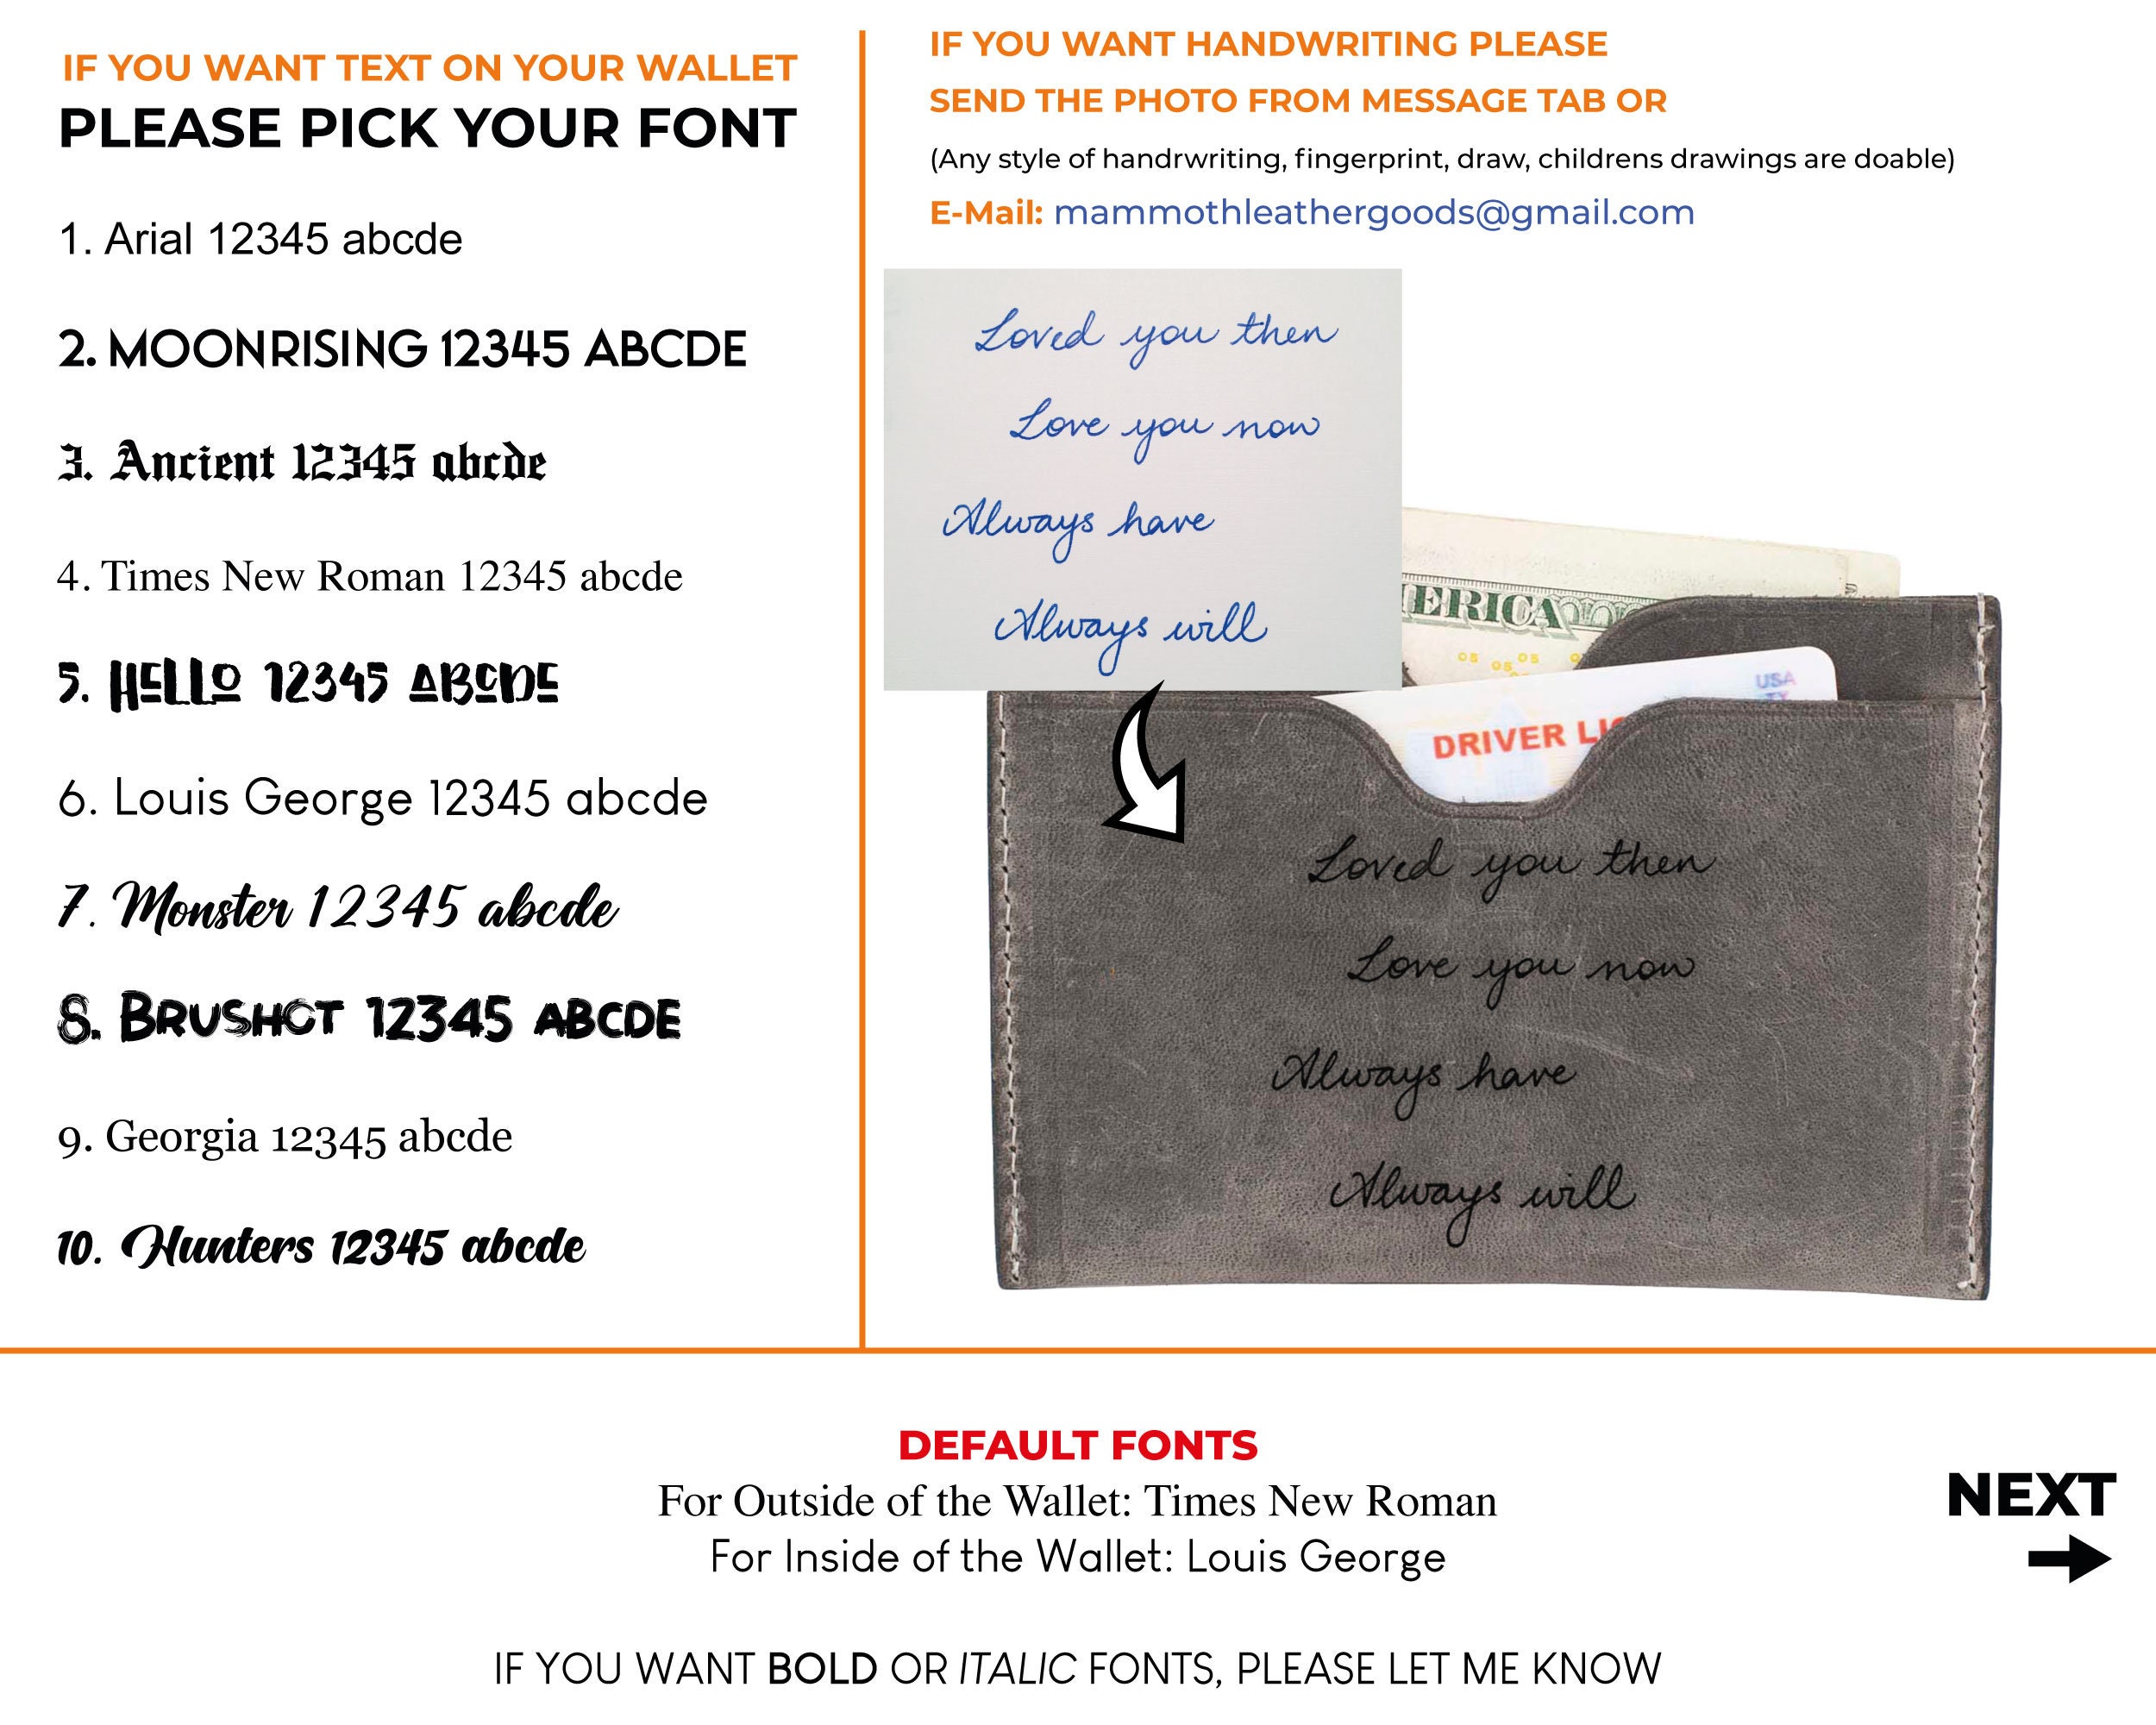 IF YOU WANT TEXT ON YOUR WALLET
PLEASE PICK YOUR FONT
1. Arial 12345 abcde
2. MOONRISING 12345 ABCDE
3. Ancient 12345 abcde
4. Times New Roman 12345 abcde
5. HELLO 12345 ABCDE
6. Louis George 12345 abcde
7. Monster 12345 abcde
8. BRUSHOT 12345 ABCDE
9. Georgia 12345 abcde
10. Hunters 12345 abcde
IF YOU WANT HANDWRITING PLEASE
SEND THE PHOTO FROM MESSAGE TAB OR
(Any style of handrwriting, fingerprint, draw, childrens drawings are doable)
E-Mail: mammothleathergoods@gmail.com
Loved you then
Love you now
Always have
Always will
ERICA
05 05 05
USA
TX
DRIVER LIC
Loved you then
Love you now
Always have
Always will
DEFAULT FONTS
For Outside of the Wallet: Times New Roman
For Inside of the Wallet: Louis George
IF YOU WANT BOLD OR ITALIC FONTS, PLEASE LET ME KNOW
NEXT